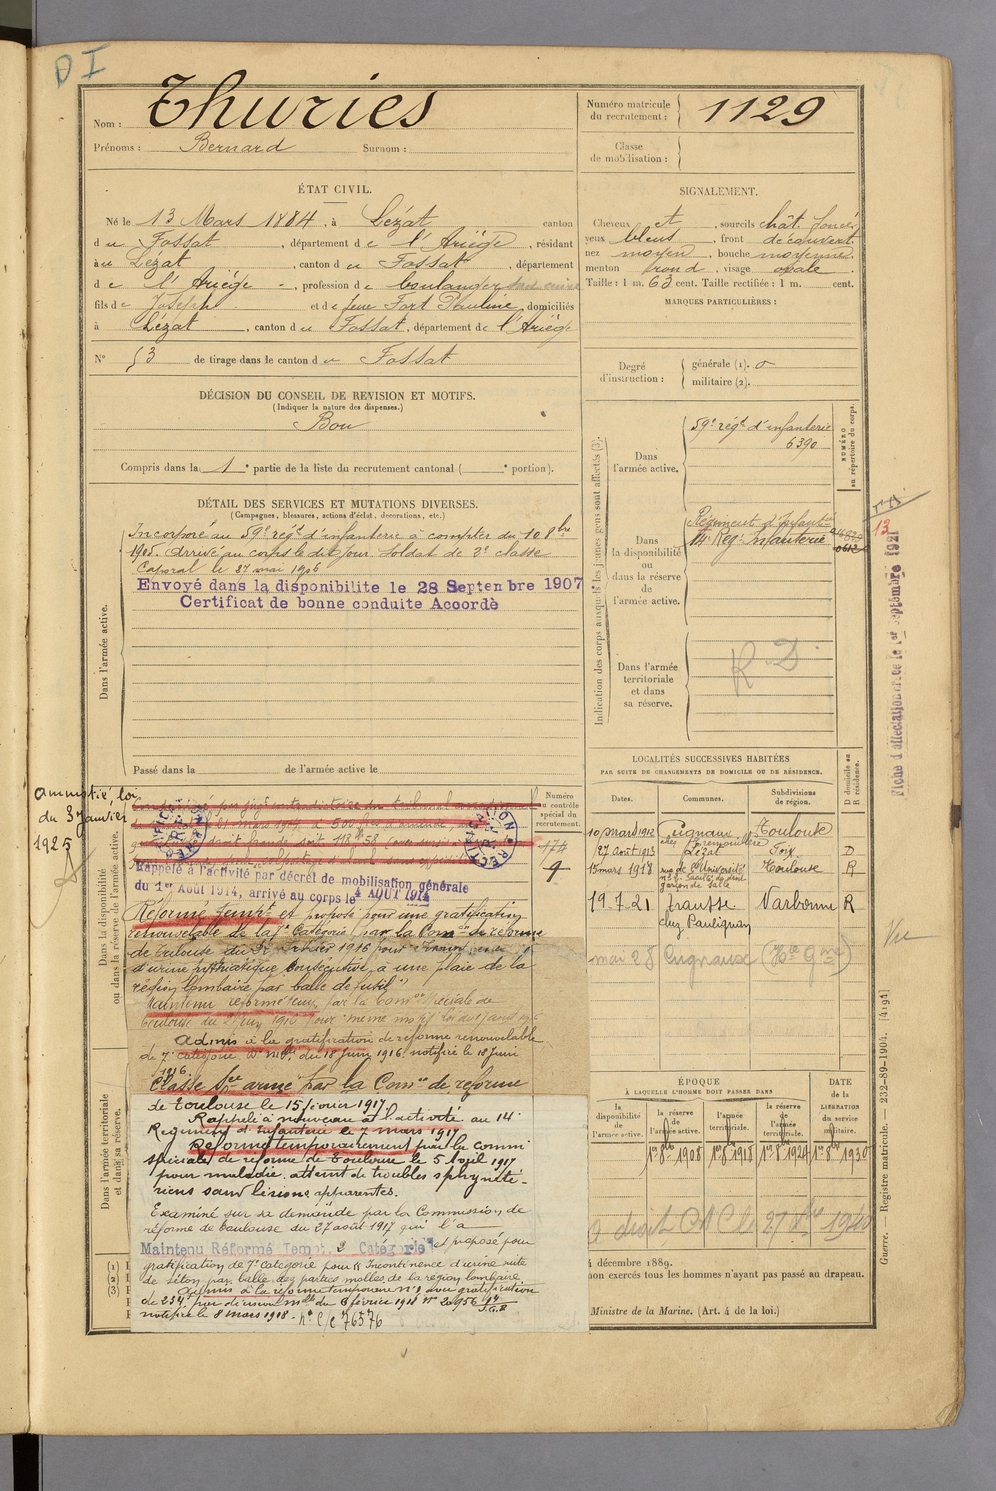 D I
Nom : Thuries
Prénoms : Bernard Surnom :
Numéro matricule du recrutement : 1129
Classe de mobilisation :
ÉTAT CIVIL.
Né le 13 Mars 1884, à Lézat canton
du Fossat, département de l'Ariège, résidant
à Lézat, canton du Fossat, département
de l'Ariège, profession de boulanger
fils de Joseph et de feue Fort Pauline, domiciliés
à Lézat, canton du Fossat, département de l'Ariège
N° 53 de tirage dans le canton du Fossat
SIGNALEMENT.
Cheveux et, sourcils chât. foncé
yeux bleus, front découvert
nez moyen, bouche moyenne
menton rond, visage ovale.
Taille : 1 m. 63 cent. Taille rectifiée : 1 m. cent.
MARQUES PARTICULIÈRES :
Degré d'instruction :
générale (1). 0
militaire (2).
DÉCISION DU CONSEIL DE REVISION ET MOTIFS.
(Indiquer la nature des dispenses.)
Bon
Compris dans la 1e partie de la liste du recrutement cantonal ( e portion).
DÉTAIL DES SERVICES ET MUTATIONS DIVERSES.
(Campagnes, blessures, actions d'éclat, décorations, etc.)
Dans l'armée active.
Incorporé au 59e régt d'infanterie à compter du 10 8bre
1905. Arrivé au corps le dit jour. Soldat de 2e classe
Caporal le 27 mai 1906
Envoyé dans la disponibilite le 28 Septenbre 1907
Certificat de bonne conduite Accordè
Passé dans la de l'armée active le
Indication des corps auxquels les jeunes gens sont affectés (3).
Dans l'armée active.
59e régt d'infanterie
6390
NUMÉRO au répertoire du corps.
Dans la disponibilité ou dans la réserve de l'armée active.
Régiment d'Infanterie
14e Reg. infanterie
Dans l'armée territoriale et dans sa réserve.
R. D.
13
Fiche d'affectation créée le 1er Septembre 1921
Amnistié, loi
du 3 Janvier
1925
Dans la disponibilité ou dans la réserve de l'armée active.
Numéro au contrôle spécial du recrutement.
174
9
RECTIFICATION
Rappelé à l'activité par décret de mobilisation générale
du 1er Août 1914, arrivé au corps le 4 AOUT 1914
Réformé tempt et proposé pour une gratification
renouvelable de la 7e Catégorie par la Comon de réforme
de Toulouse du
d'urine pithiatique consécutive à une plaie de la
région lombaire par balle de fusil"
Maintenu réformé temp. par la Comon Spéciale de
Toulouse du Juin 1916 pour même motif
Admis à la gratification de réforme renouvelable
de 7e catégorie du 18 Juin 1916 notifiée le 18 Juin
1916.
Classé Sce armé par la Comon de réforme
de Toulouse le 15 février 1917
Rappelé à nouveau à l'activité au 14e
Regiment d'Infanterie le 7 mars 1917
Réformé temporairement par la commi
spéciale de réforme de Toulouse le 5 Avril 1917
pour maladie, atteint de troubles sphynctériens sans lésions apparentes.
Examiné sur sa demande par la Commission de
réforme de Toulouse du 27 août 1917 qui l'a
Maintenu Réformé Temp. 2e Catégorie et proposé pour
gratification de 7e catégorie pour Incontinence d'urine suite
de séton par balle des parties molles de la région lombaire
Admis à la réforme temporaire n° 1 avec gratification
de 234f par décision mlle du 6 février 1918 N° 20956
notifiée le 8 mars 1918. 76576
Dans l'armée territoriale et dans sa réserve.
(1)
(2)
(3)
LOCALITÉS SUCCESSIVES HABITÉES
PAR SUITE DE CHANGEMENTS DE DOMICILE OU DE RÉSIDENCE.
Dates. Communes. Subdivisions de région. D domicile ou R résidence.
10 mars 1912 Cugnaux Toulouse
27 Août 1913 Lézat Foix D
15 mars 1918 rue de l'Université Toulouse R
garçon de salle
19.7.21 Trausse Narbonne R
chez Paulignan
mai 28 Cugnaux (Hte Gne)
Vu
ÉPOQUE
À LAQUELLE L'HOMME DOIT PASSER DANS
la disponibilité de l'armée active.
la réserve de l'armée active. 1er 8bre 1908
l'armée territoriale. 1er 8bre 1918
la réserve de l'armée territoriale. 1er 8bre 1924
DATE de la LIBÉRATION du service militaire. 1er 8bre 1930
a droit CAC le 27 1940
4 décembre 1889.
non exercés tous les hommes n'ayant pas passé au drapeau.
Ministre de la Marine. (Art. 4 de la loi.)
Guerre. — Registre matricule. — 232-89-1904. [4194]